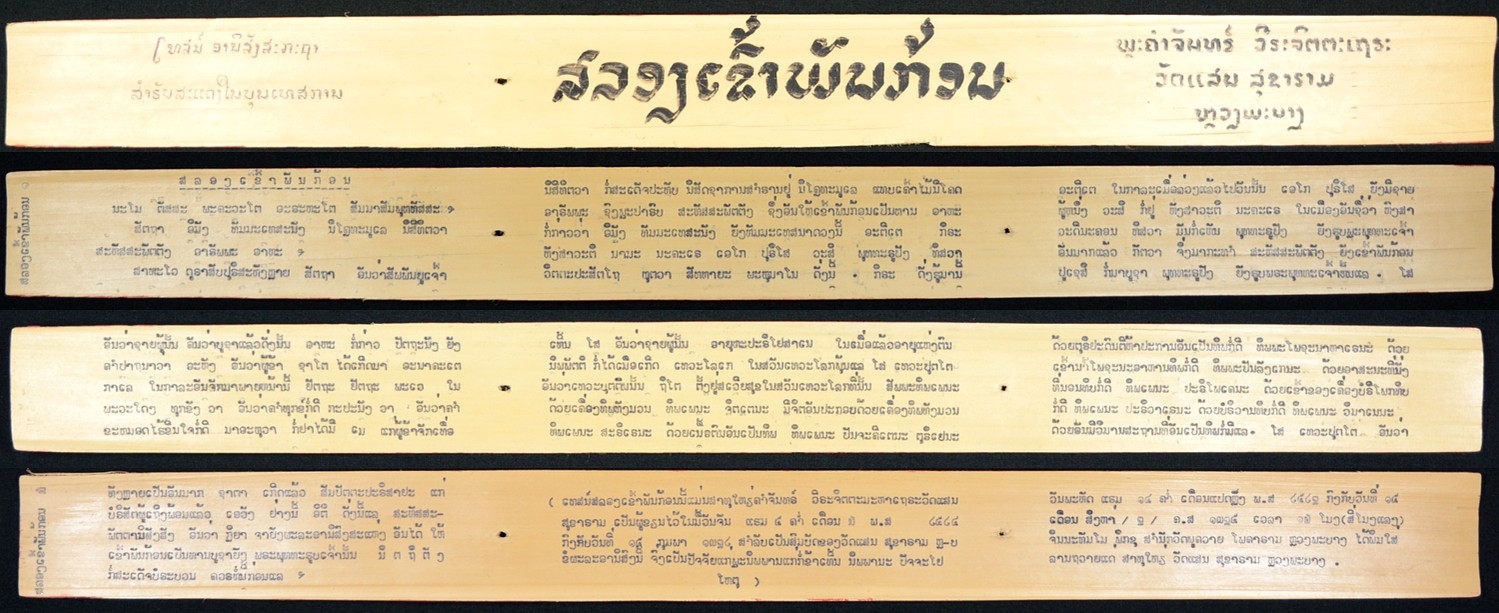 ເທສນ໌ ອານິສົງສະກະຖາ
ສຳຣັບສະແດງໃນບຸນເທສການ
ສລອງເຂົ້າພັນກ້ອນ
ພຣະຄຳຈັນທຣ໌ ວິຣະຈິຕຕະເຖຣະ
ວັດແສນ ສຸຂາຣາມ
ຫຼວງພະບາງ
ສລອງເຂົ້າພັນກ້ອນ
ສລອງເຂົ້າພັນກ້ອນ
ນະໂມ ຕັສສະ ພະຄະວະໂຕ ອະຣະຫະໂຕ ສັມມາສັມພຸທທັສສະ
ສັຕຖາ ອິມັງ ທັມມະເທສະນັງ ນິໂຄຼທະມູເລ ນິສີທິຕວາ
ສະຫັສສະພັຕຕັງ ອາຣັພພະ ອາຫະ
ສາທະໂວ ດູຣາສັບປຸຣິສະທັງຫຼາຍ ສັຕຖາ ອັນວ່າສັພພັນຍູເຈົ້າ
ນິສີທິຕວາ ກໍ່ສະເດັຈປະທັບ ນິສັດຊາການສຳຣານຢູ່ ນິໂຄຼທະມູເລ ແທບເຄົ້າໄມ້ນິໂຄດ
ອາຣັພພະ ຊົງພຣະປາຣົບ ສະຫັສສະພັຕຕັງ ຊຶ່ງອັນໃຫ້ເຂົ້າພັນກ້ອນເປັນທານ ອາຫະ
ກໍ່ກ່າວວ່າ ອິມັງ ທັມມະເທສະນັງ ຍັງທັມມະເທສນາດວງນີ້ ອະຕິເຕ ກິຣະ
ທັງສາວະຕິ ນາມະ ນະຄະເຣ ເອໂກ ປຸຣິໂສ ວະສິ ພຸທທະຣູປັງ ທິສວາ
ຈິຕຕະປະສັດໂຖ ຫຸຕວາ ສັທທາຍະ ພະຫຸມາໂນ ດັ່ງນີ້ . ກິຣະ ດັ່ງຮູ້ມານີ້
ອະຕິເຕ ໃນກາລະເມື່ອລ່ວງແລ້ວໄປວັນນັ້ນ ເອໂກ ປຸຣິໂສ ຍັງມີຊາຍ
ຜູ້ໜຶ່ງ ວະສິ ກໍ່ຢູ່ ທັງສາວະຕິ ນະຄະເຣ ໃນເມືອງອັນຊື່ວ່າ ທັງສາ
ວະຕິນະຄອນ ທິສວາ ມັນກໍ່ເຫັນ ພຸທທະຣູປັງ ຍັງຮູບພຣະພຸທທະເຈົ້າ
ອັນມາກແລ້ວ ກັຕວາ ຈຶ່ງມາກະທຳ ສະຫັສສະພັຕຕັງ ຍັງເຂົ້າພັນກ້ອນ
ປູເຊສິ ກໍ່ມາບູຊາ ພຸທທະຣູປັງ ຍັງຮູບພຣະພຸທທະເຈົ້າຫັ້ນແລ . ໂສ
ອັນວ່າຊາຍຜູ້ນັ້ນ ຄັນວ່າບູຊາແລ້ວດັ່ງນັ້ນ ອາຫະ ກໍ່ກ່າວ ປັຕຖະນັງ ຍັງ
ຄຳປາຖນາວ່າ ອະຫັງ ອັນວ່າຜູ້ຂ້າ ຊາໂຕ ໄດ້ເກີດມາ ອະນາຄະເຕ
ກາເລ ໃນກາລະອັນຈັກມາພາຍໜ້ານີ້ ປັຕຖະ ປັຕຖະ ພະເວ ໃນ
ພະວະໂຕງ ທຸກຂັງ ວາ ອັນວ່າຄຳທຸກຂ໌ກໍ່ດີ ກະປະນັງ ວາ ອັນວ່າຄຳ
ຂະຫມອດໄຮ້ຂືນໃຈກໍ່ດີ ມາອະຫຸວາ ກໍ່ຢ່າໄດ້ມີ ເມ ແກ່ຜູ້ຂ້າຈັກເທື່ອ
ເຫັ້ນ ໂສ ອັນວ່າຊາຍຜູ້ນັ້ນ ອາຍຸຫະປະຣິໂຢສາເນ ໃນເມື່ອແລ້ວອາຍຸແຫ່ງຕົນ
ນິພັຕຕິ ກໍ່ໄດ້ເມືອເກີດ ເທວະໂລເກ ໃນສວັນເທວະໂລກພຸ້ນແລ ໂສ ເທວະປຸຕໂຕ
ອັນວ່າເທວະບຸຕຕົນນັ້ນ ຖິໂຕ ຕັ້ງຢູ່ສເວີຍສຸຂໃນສວັນເທວະໂລກທີ່ນັ້ນ ສັພພະທິພເພນະ
ດ້ວຍເຄື່ອງທິພທັງມວນ ທິພເພນະ ຈິຕເຕນະ ມີຈິຕອັນປະກອບດ້ວຍເຄື່ອງທິພທັງມວນ
ທິພເພນະ ສະຣິເຣນະ ດ້ວຍເນື້ອຕົນອັນເປັນທິພ ທິພເພນະ ປັນຈະຄິເຕນະ ຕຸຣິເຢນະ
ດ້ວຍຕຸຣິຍະດົນຕີຫ້າປະການອັນເປັນທິພກໍ່ດີ ທິພພະໂພຊະນາຫາເຣນະ ດ້ວຍ
ເຂົ້ານ້ຳໂພຊະນະອາຫານທິພກໍ່ດີ ທິພພະປັນລັງເກນະ ດ້ວຍອາສະນະທີ່ນັ່ງ
ທີ່ນອນທິພກໍ່ດີ ທິພເພນະ ປະຣິໂພເຄນະ ດ້ວຍເຂົ້າຂອງເຄື່ອງບໍຣິໂພກທິພ
ກໍ່ດີ ທິພເພນະ ປະຣິວາເຣນະ ດ້ວຍບໍຣິວານທິບກໍ່ດີ ທິພເພນະ ວິມາເນນະ
ດ້ວຍອັນມີວິມານສະຖານທີ່ອັນເປັນທິພກໍ່ມີແລ. ໂສ ເທວະປຸຕໂຕ ອັນວ່າ
ສລອງເຂົ້າພັນກ້ອນ
ທັງຫຼາຍເປັນອັນມາກ ຊາຕາ ເກີດແລ້ວ ສັມປັຕຕະປະຣິສາປະ ແກ່
ບໍຣິສັດຜູ້ເຖິງພ້ອມແລ້ວ ເອວັງ ຢ່າງນີ້ ອິຕິ ດັ່ງນີ້ແລ ສະຫັສສະ-
ພັຕຕານິສັງສັງ ອັນວ່າ ກິຍາ ຈາຍັງພະລະອານິສົງສະແຫ່ງ ອັນໄດ້ ໃຫ້
ເຂົ້າພັນກ້ອນເປັນທານບູຊາຍັງ ພຣະພຸທທະຮູບເຈົ້ານັ້ນ ນິ ຕ ຖິ ຕັ ງ
ກໍ່ສະເດັຈບໍຣະບວນ ຄວຣເທົ່ານີ້ກ່ອນແລ
( ເທສນ໌ສລອງເຂົ້າພັນກ້ອນນີ້ແມ່ນສາທຸໃຫຍ່ຄຳຈັນທຣ໌ ວິຣະຈິຕຕະມະຫາເຖຣະວັດແສນ
ສຸຂາຣາມ ເປັນຜູ້ຂຽນໄວ້ໃນມື້ວັນຈັນ
ສຳລັບເປັນສົມບັດຂອງວັດແສນ ສຸຂາຣາມ ຫຼ-ບ
ຂໍຫະລະອານິສົງນີ້ ຈົ່ງເປັນປັຈຈັຍແກ່ພຣະນິພພານແກ່ກໍ່ຂ້າເທີ້ນ ນິພພານະ ປັຈຈະໂຢ
ໂຫຕຸ )
ວັນພະຫັດ ແຮມ ໑໔ ຄ່ຳ ເດືອນແປດ
ຈັນນະທັມໂມ ພິກຂຸ ສຳນັກວັດພູຄວາຍ ໂພຄາຣາມ ຫຼວງພະບາງ ໄດ້ພິມໃສ່
ລານຖວາຍແດ່ ສາທຸໃຫຍ່ ວັດແສນ ສຸຂາຣາມ ຫຼວງພະບາງ .